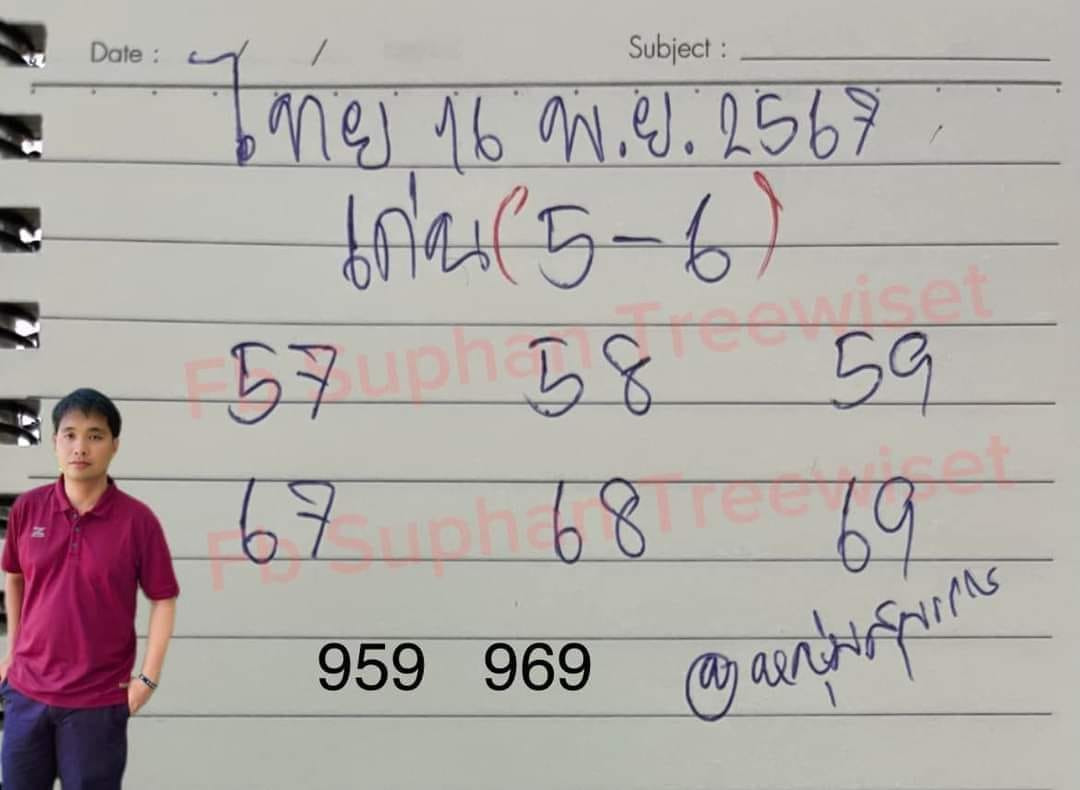 Date : / / Subject :
ไทย 16 พ.ย. 2567
เด่น (5-6)
Fb Suphan Treewiset
57 58 59
67 68 69
Fb Suphan Treewiset
959 969